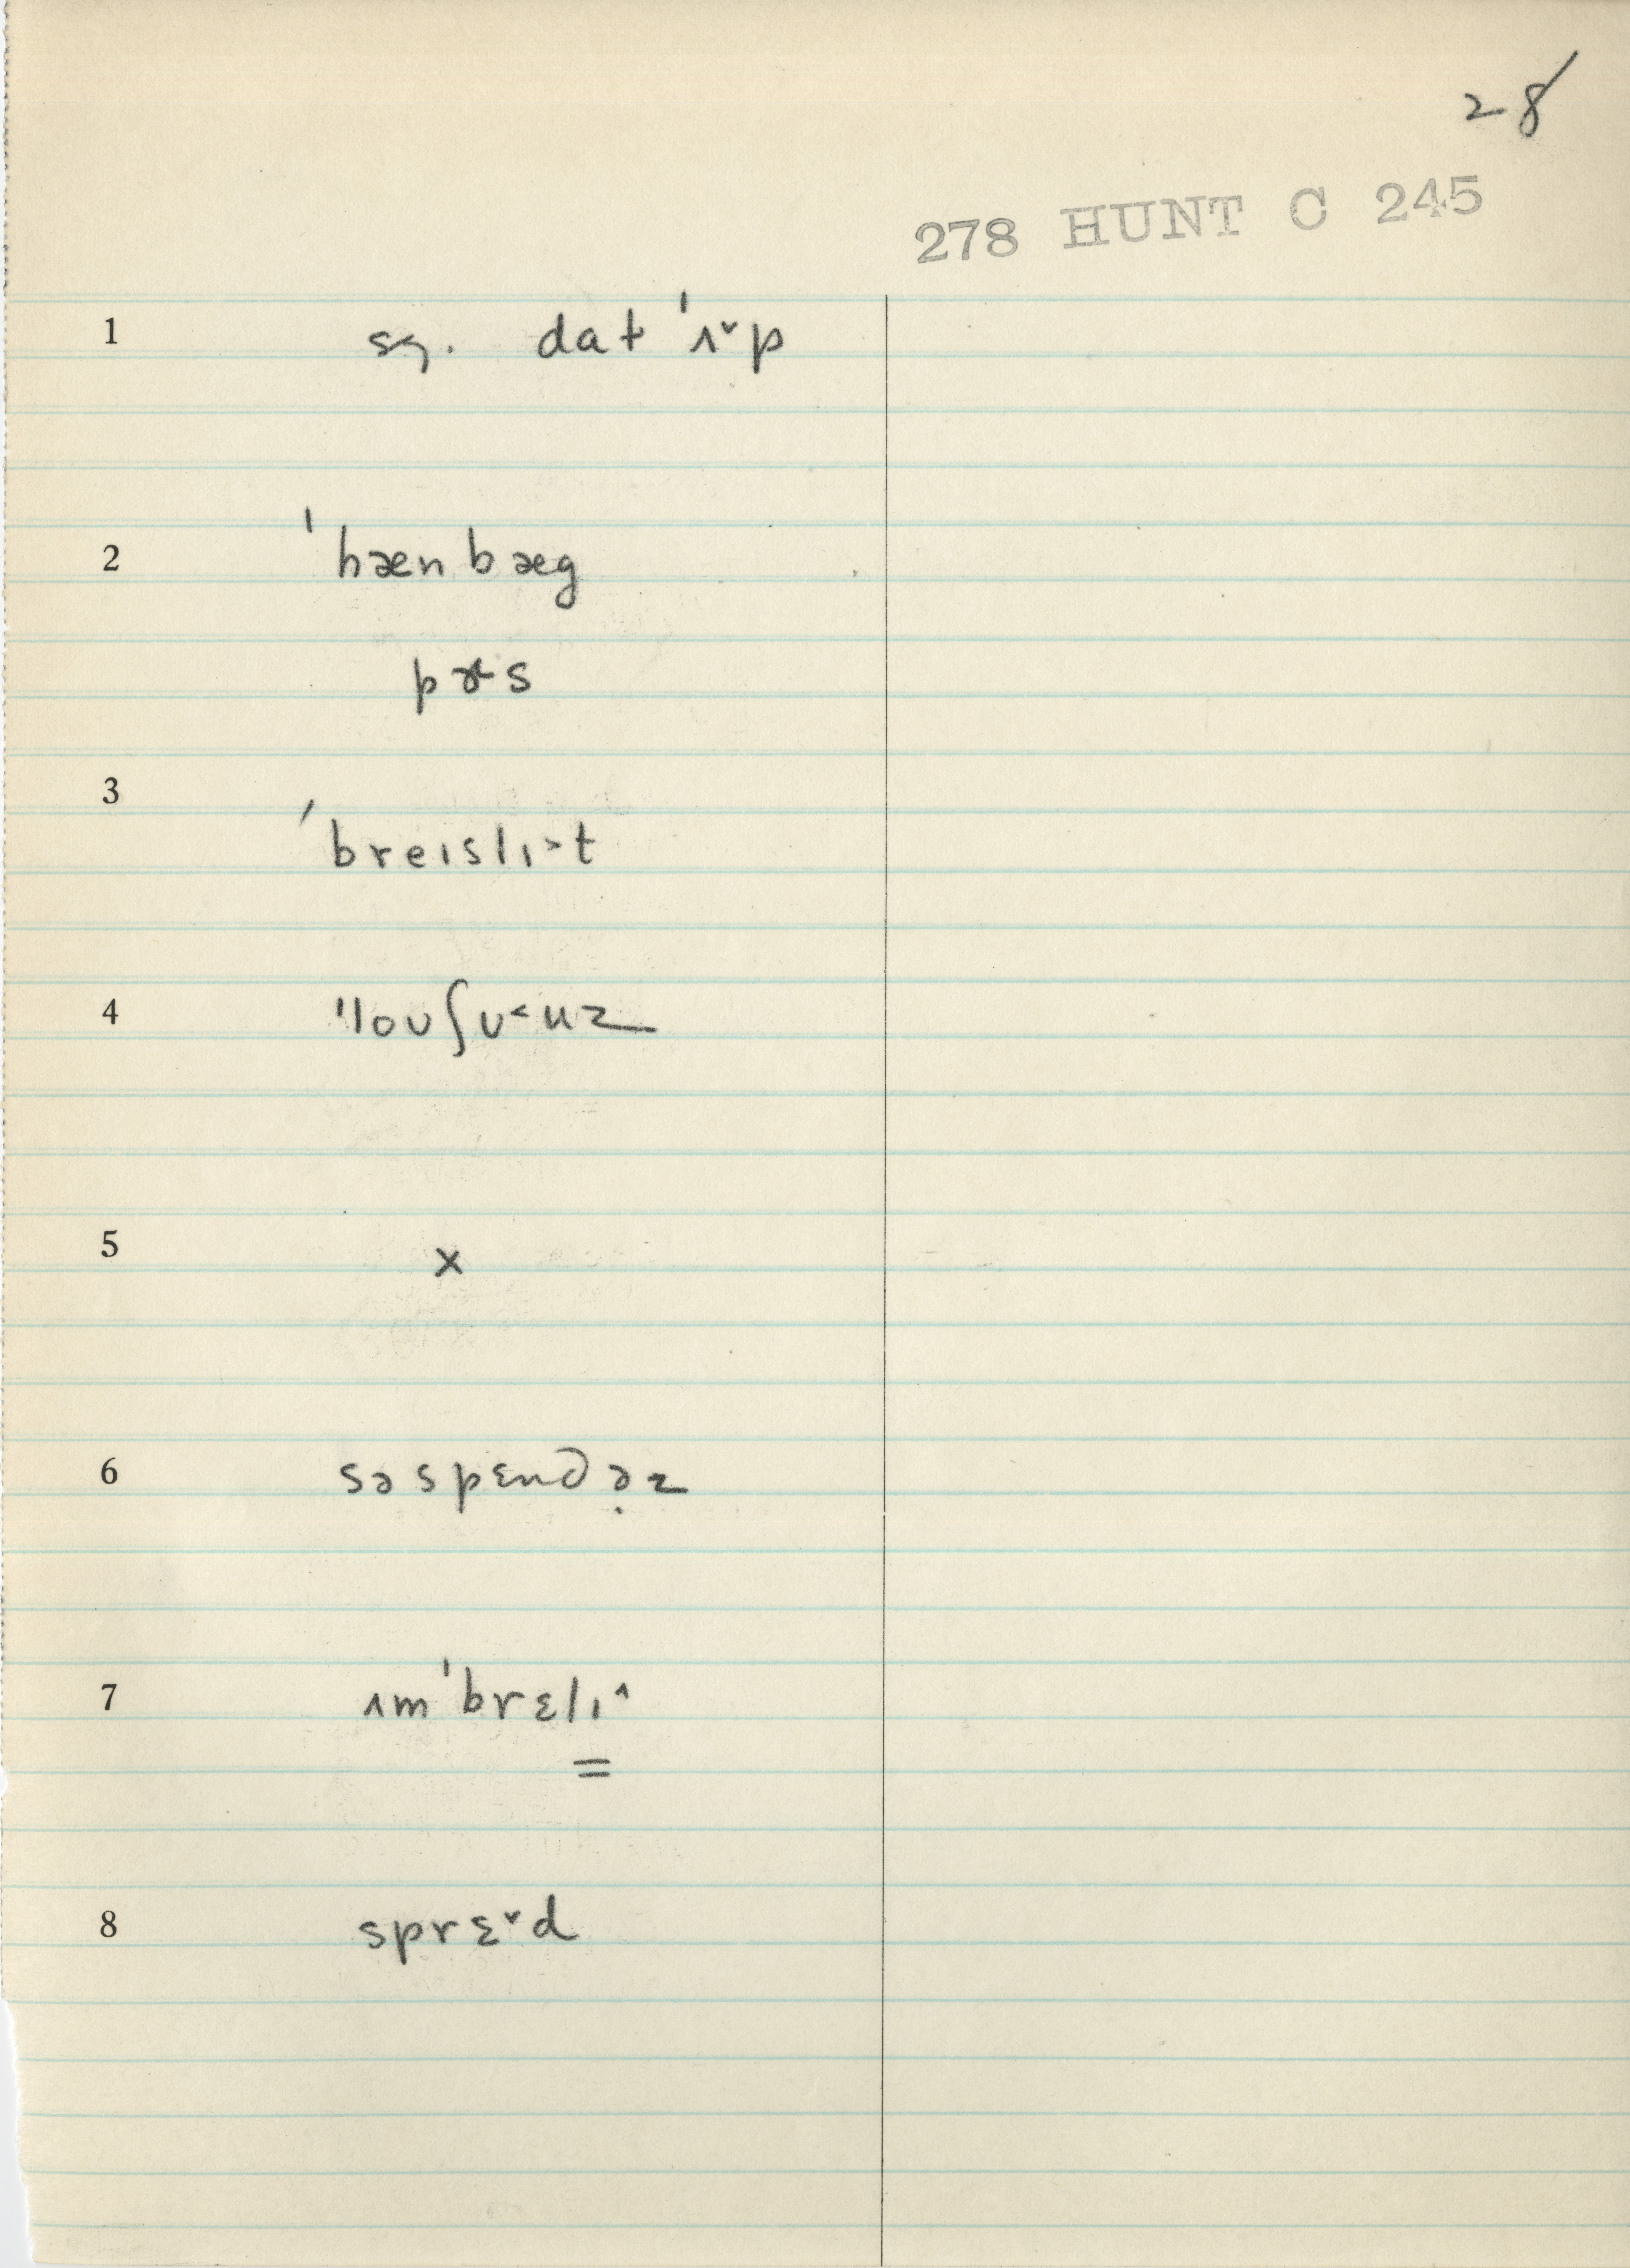 28
278 HUNT C 245
1 sq. dat 'ʌ˅p
2 'hænbæg
pɝs
3 'breɪslɪ˃t
4 'loʊʃʊ˂nz
5 x
6 səspɛndə̣z
7 ʌm'brɛlɪ˄
=
8 sprɛ˅d